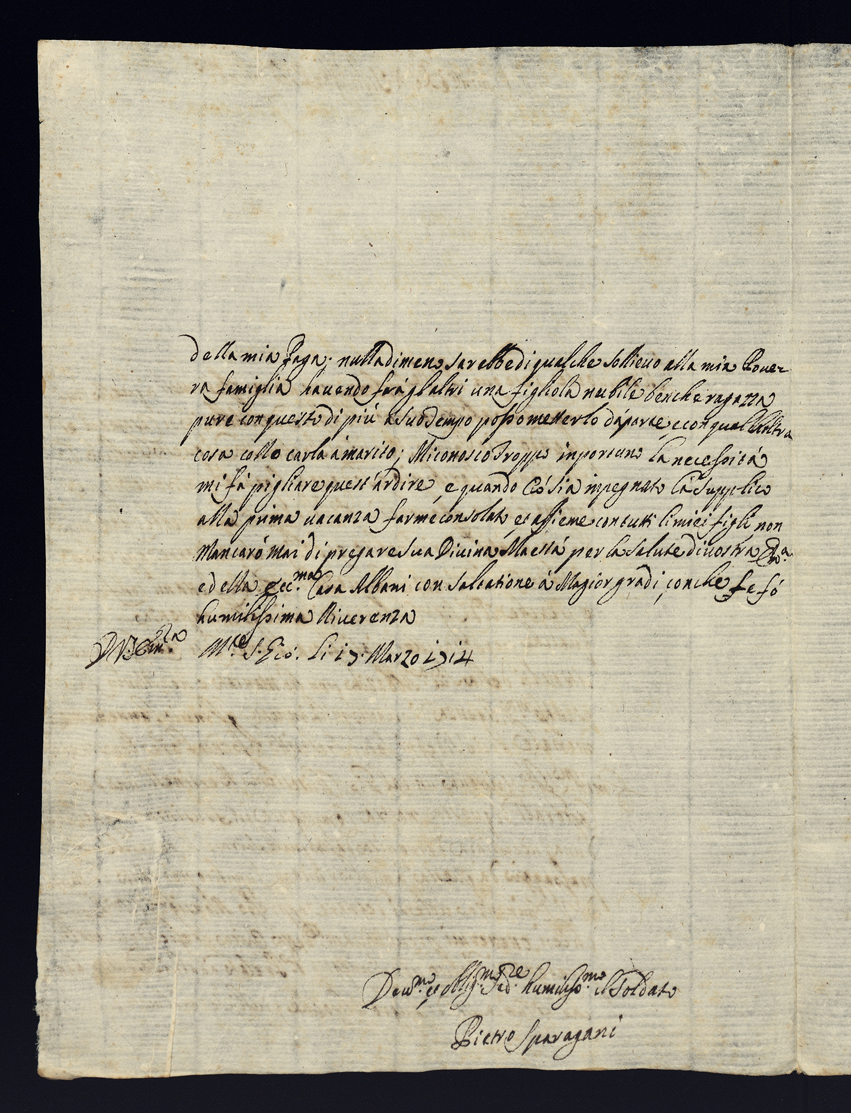 della mia Paga. nulladimeno sarebbe di qualche sollievo alla mia Pover-
ra famiglia havendo frà gl'altri una figliola nubile benche ragazza
pure con questo di più à suo tempo posso metterlo dà parte e con qualch'altra
cosa collocarla à marito; Mi conosco troppo inportuno la necessità
mi fà pigliare quest'ardire, e quando Ciò sia impegnato la supplico
alla prima vacanza farme consolato et assieme con tutti li miei figli non
Mancarò mai di pregare Sua Divina Maestà per la Salute di vostra Em.za
e della Ecc.ma Casa Albani con Salvatione à Magior gradi, con che le fò
humilissima Riverenza
D V. Em.za Mte. S. Gio. li 17. Marzo 1714
Devmo. et Obligmo. humilismo. il Soldato
Pietro Sparagani